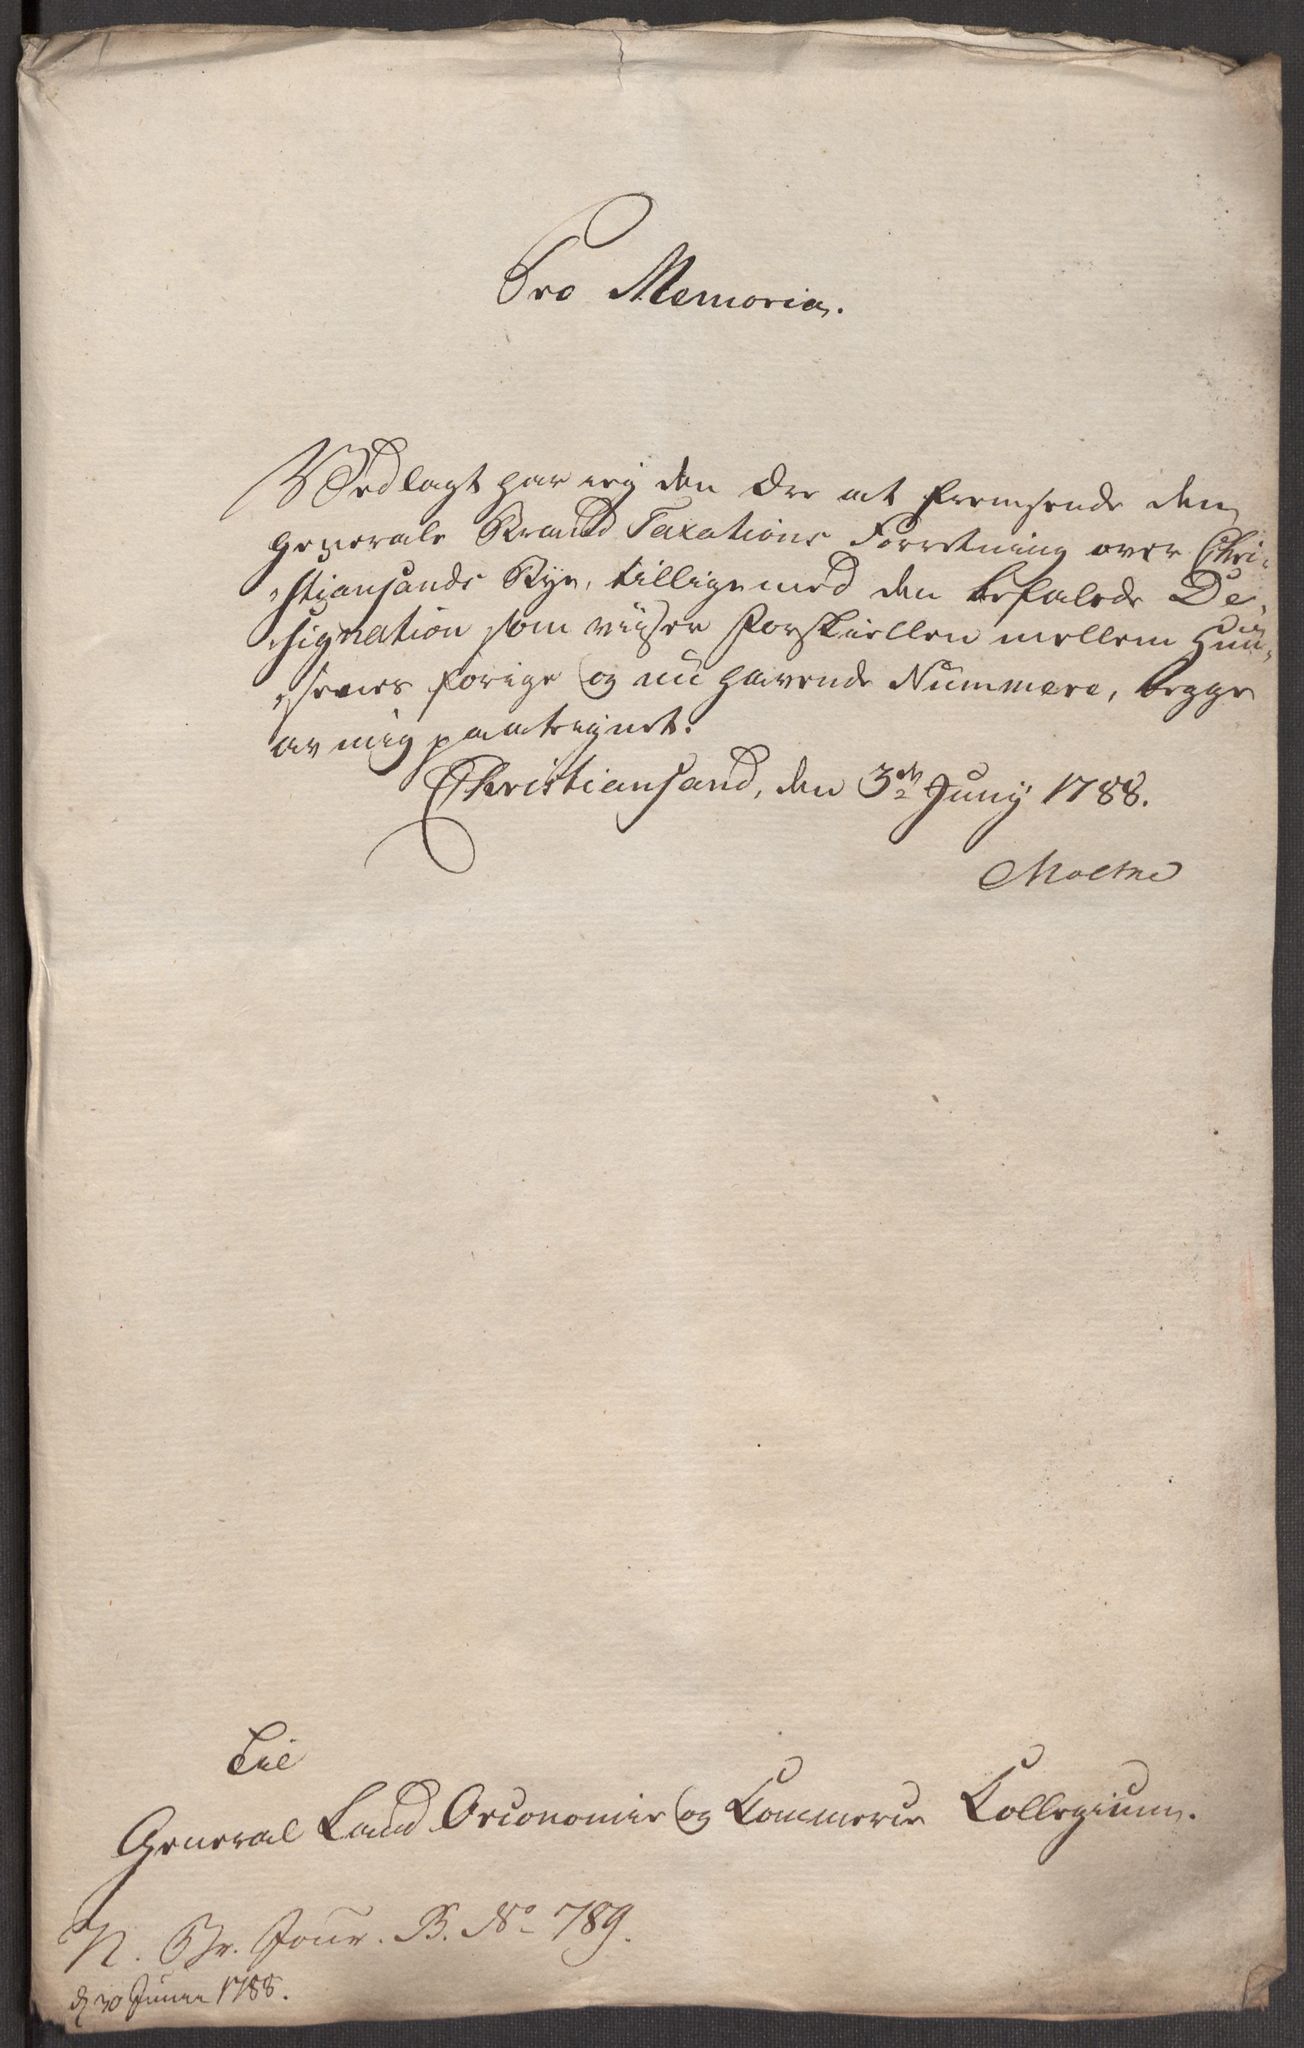 Pro Memoria.
Vedlagt har ieg den Ære at fremsende den
generale Brand Taxations Forretning over Chri-
stiansands Bye, tilligemed den befalede De-
signation som viiser Forskiellen mellem Huu-
senes forige og nu havende Nummere, begge
av mig paategnet.
Christiansand, den 3die Juny 1788.
Moltke
Til
General Land Oeconomie og Commerce Collegium.
N. Br. Jour. B. No 789.
d 30 Junii 1788.